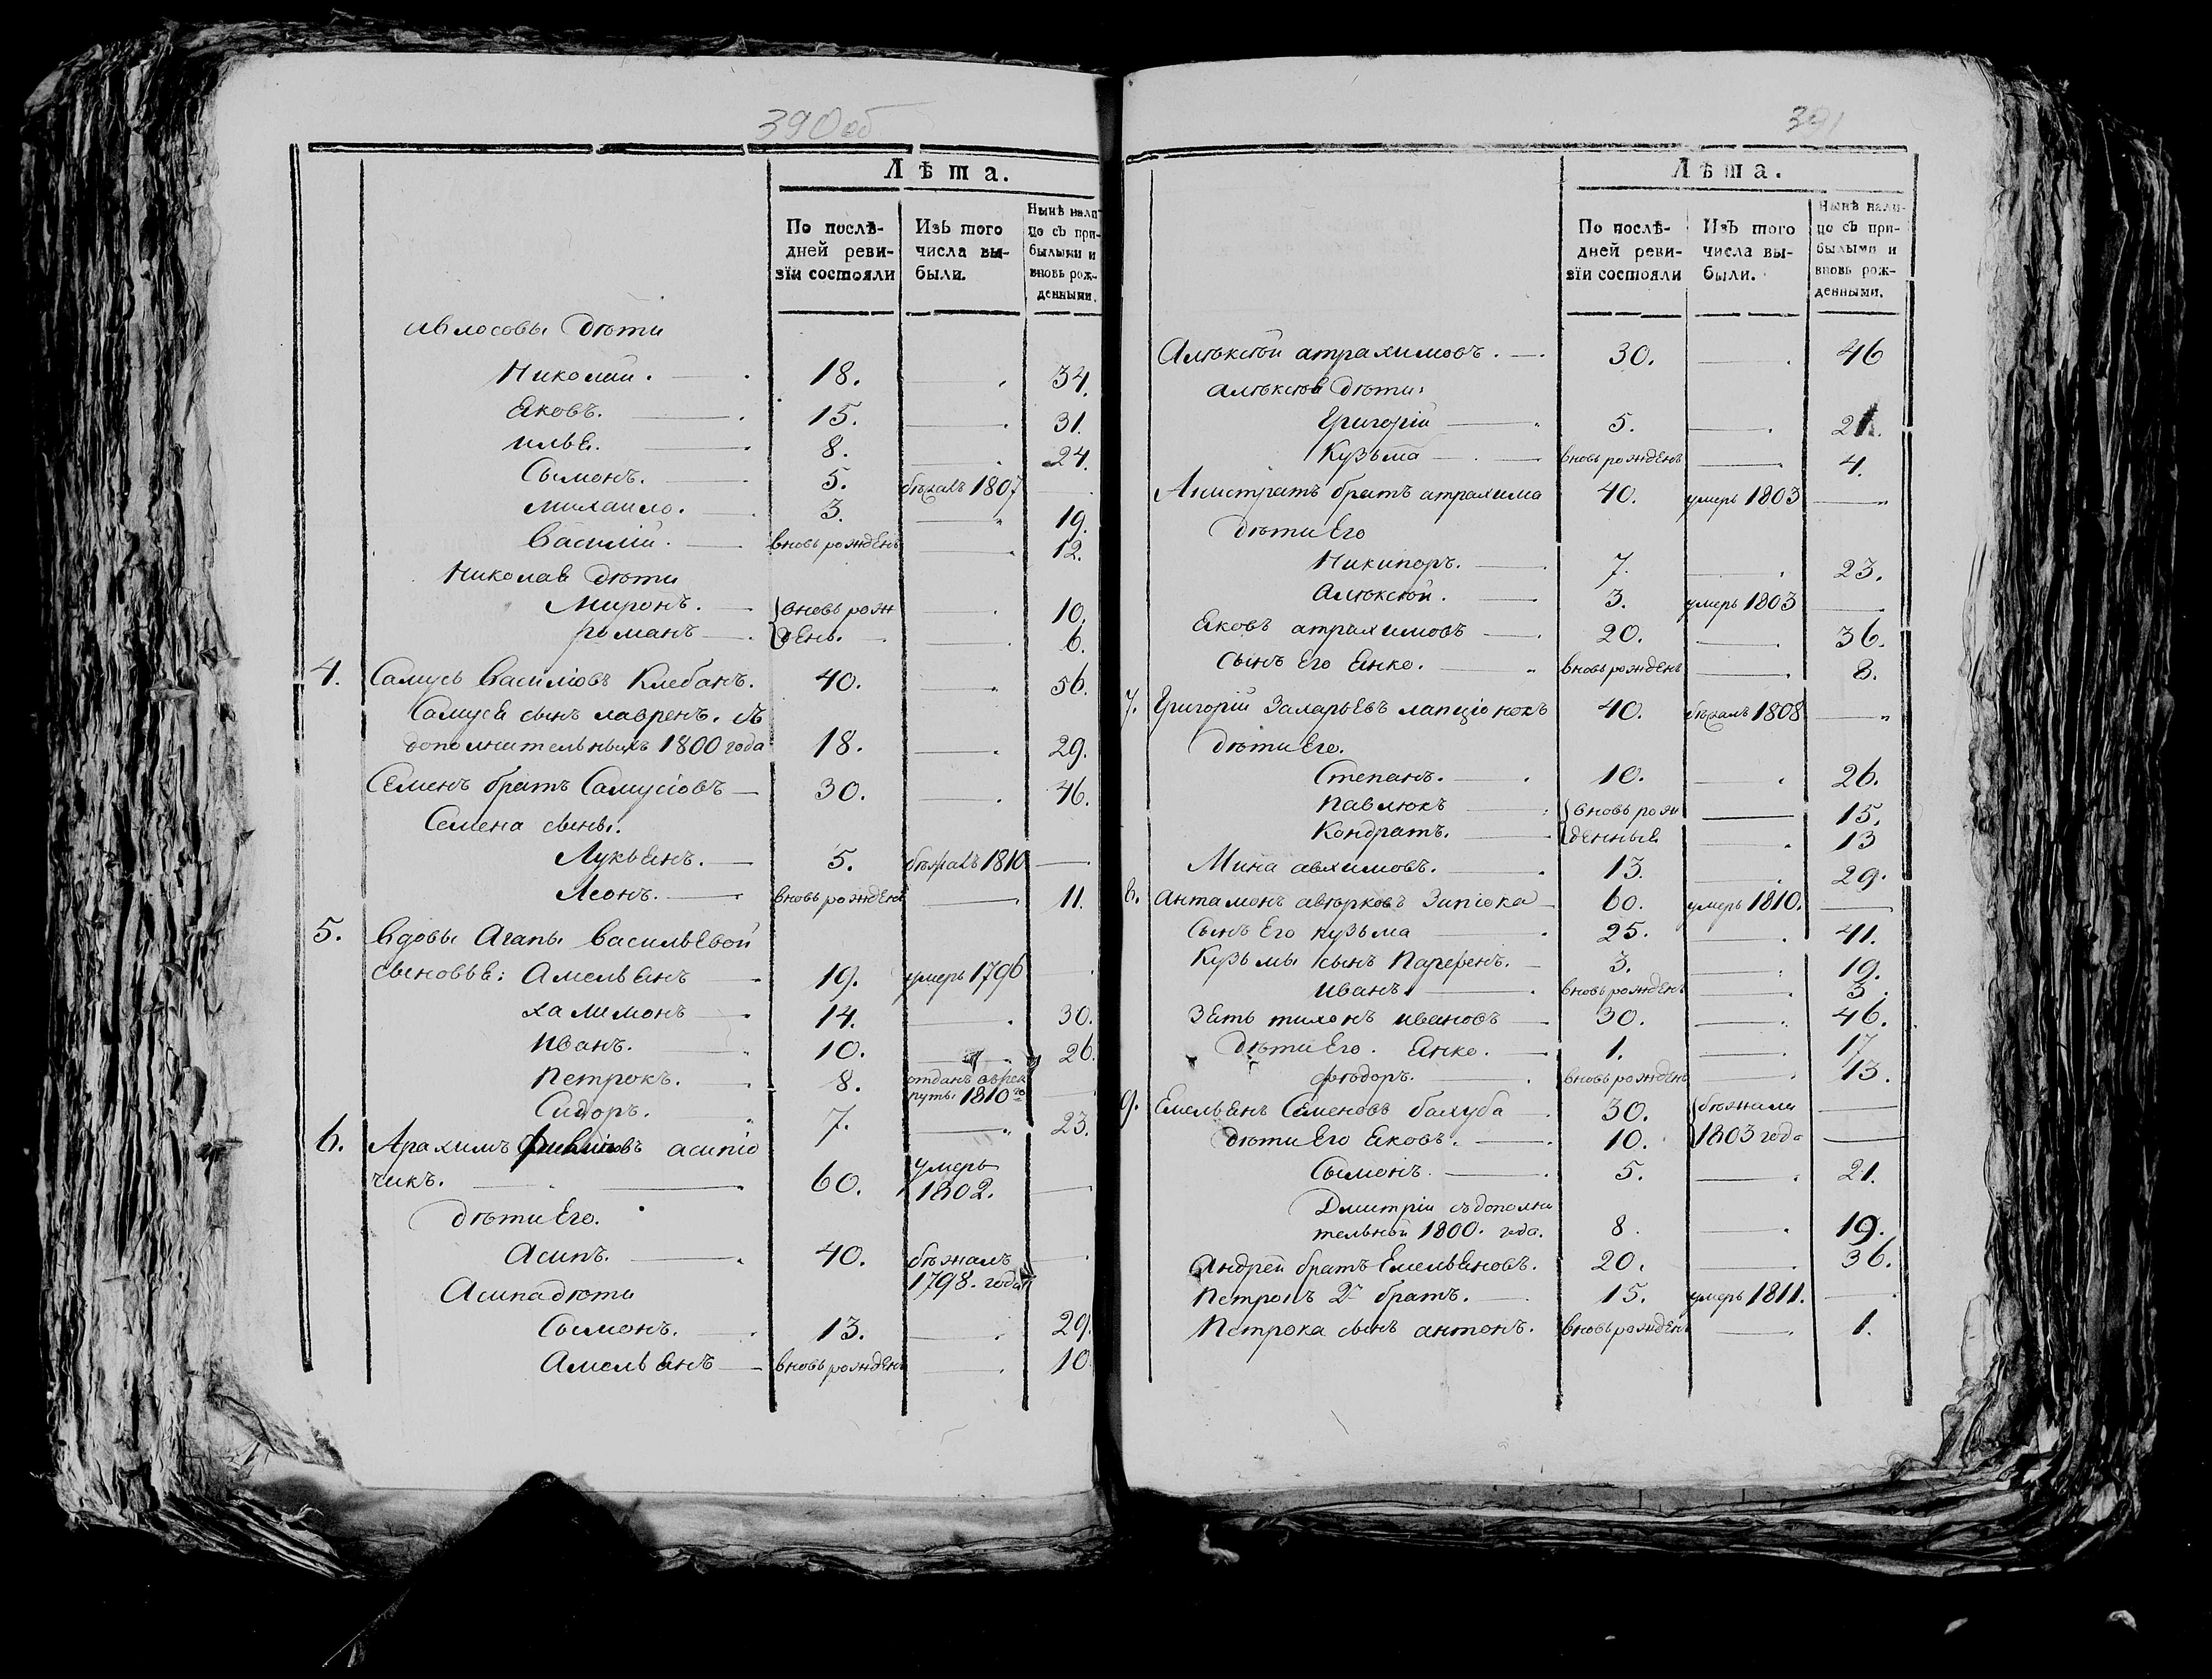 390об
Лѣта.
По послѣ-
дней реви-
зїи состояли
Изъ того
числа вы-
были.
Нынѣ нали
цо съ при-
былыми и
вновь рож-
денными.
дѣти
Николай. 18. 34.
Яковъ. 15. 31.
илья. 8. 24.
Сымонъ. 5. бѣжалъ 1807
михайло. 3. 19.
василій. вновь рожденъ 12.
Николая дѣти
Миронъ. вновь рож 10.
романъ денъ. 6.
4. Самусь василіовъ Клебанъ. 40. 56.
Самуся сынъ лавренъ. съ
дополнительныхъ 1800 года 18. 29.
Семенъ братъ Самусіовъ 30. 46.
Семена сыны.
Лукьянъ. 5. бѣжалъ 1810
Леонъ. вновь рожденъ 11.
5. вдовы Агапы васильевой
сыновья: Амельянъ 19. умеръ 1796
халимонъ 14. 30.
иванъ. 10. 26.
петрокъ. 8. отданъ врек
руты 1810го
Сидоръ. 7. 23.
6. Арахимъ асипіо
чикъ. 60. умеръ
1802.
дѣти Его.
Асипъ. 40. бѣжалъ
1798. года
Асипа дѣти
Сымонъ. 13. 29.
Амельянъ вновь рожденъ 10
391
Лѣта.
По послѣ-
дней реви-
зїи состояли
Изъ того
числа вы-
были.
Нынѣ нали-
цо съ при-
былыми и
вновь рож-
денными.
Алѣксѣй атрахимовъ. 30. 46
алѣксѣя дѣти:
Григорій 5. 21.
Кузьма вновь рожденъ 4.
Анистратъ братъ атрахима 40. умеръ 1803
дѣти Его
Никипоръ. 7. 23.
алѣксѣй. 3. умеръ 1803
Яковъ атрахимовъ 20. 36.
сынъ Его Янко. вновь рожденъ 8.
7. Григорій Захарьевъ лапціонокъ 40. бѣжалъ 1808
дѣти Его.
Степанъ. 10. 26.
павлюкъ вновь рож 15.
Кондратъ. денныя 13
Мина авхимовъ. 13. 29.
8. антамонъ Запіока 60. умеръ 1810.
Сынъ Его кузьма 25. 41.
Кузьмы сынъ Парфенъ. 3. 19.
иванъ. вновь рожденъ 3.
Зять тихонъ ивановъ 30. 46.
дѣти Его. Янко. 1. 17
фѣдоръ. вновь рожденъ 13.
9. Емельянъ Семеновъ балуба 30. бѣжали
дѣти Его Яковъ. 10. 1803 года
Сымонъ. 5. 21.
Дмитрій съ дополни
тельной 1800. года. 8. 19.
Андрей братъ Емельяновъ. 20. 36.
петрокъ 2й братъ. 15. умеръ 1811.
петрока сынъ антонъ. вновь рожденъ 1.